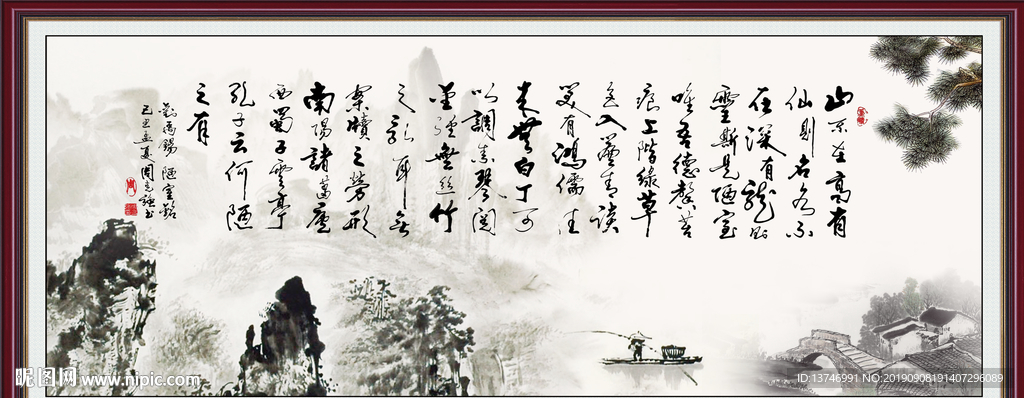 山不在高有
仙則名水不
在深有龍則
靈斯是陋室
唯吾德馨苔
痕上階綠草
色入簾青談
笑有鴻儒往
來無白丁可
以調素琴閱
金經無絲竹
之亂耳無
案牘之勞形
南陽諸葛廬
西蜀子雲亭
孔子云何陋
之有
劉禹錫 陋室銘
己丑孟夏周書
昵图网 www.nipic.com
ID:13746991 NO:20190908191407296089